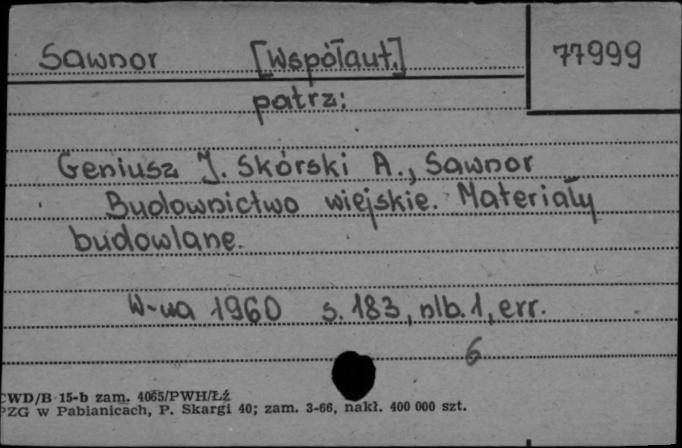 Sawnor [Współaut.] 77999
patrz:
Geniusz J. Skórski A., Sawnor
Budownictwo wiejskie. Materiały
budowlane.
W-wa 1960 s. 183, nlb. 1, err.
6
CWD/B 15-b zam. 4065/PWH/Łź
PZG w Pabianicach, P. Skargi 40; zam. 3-66, nakł. 400 000 szt.